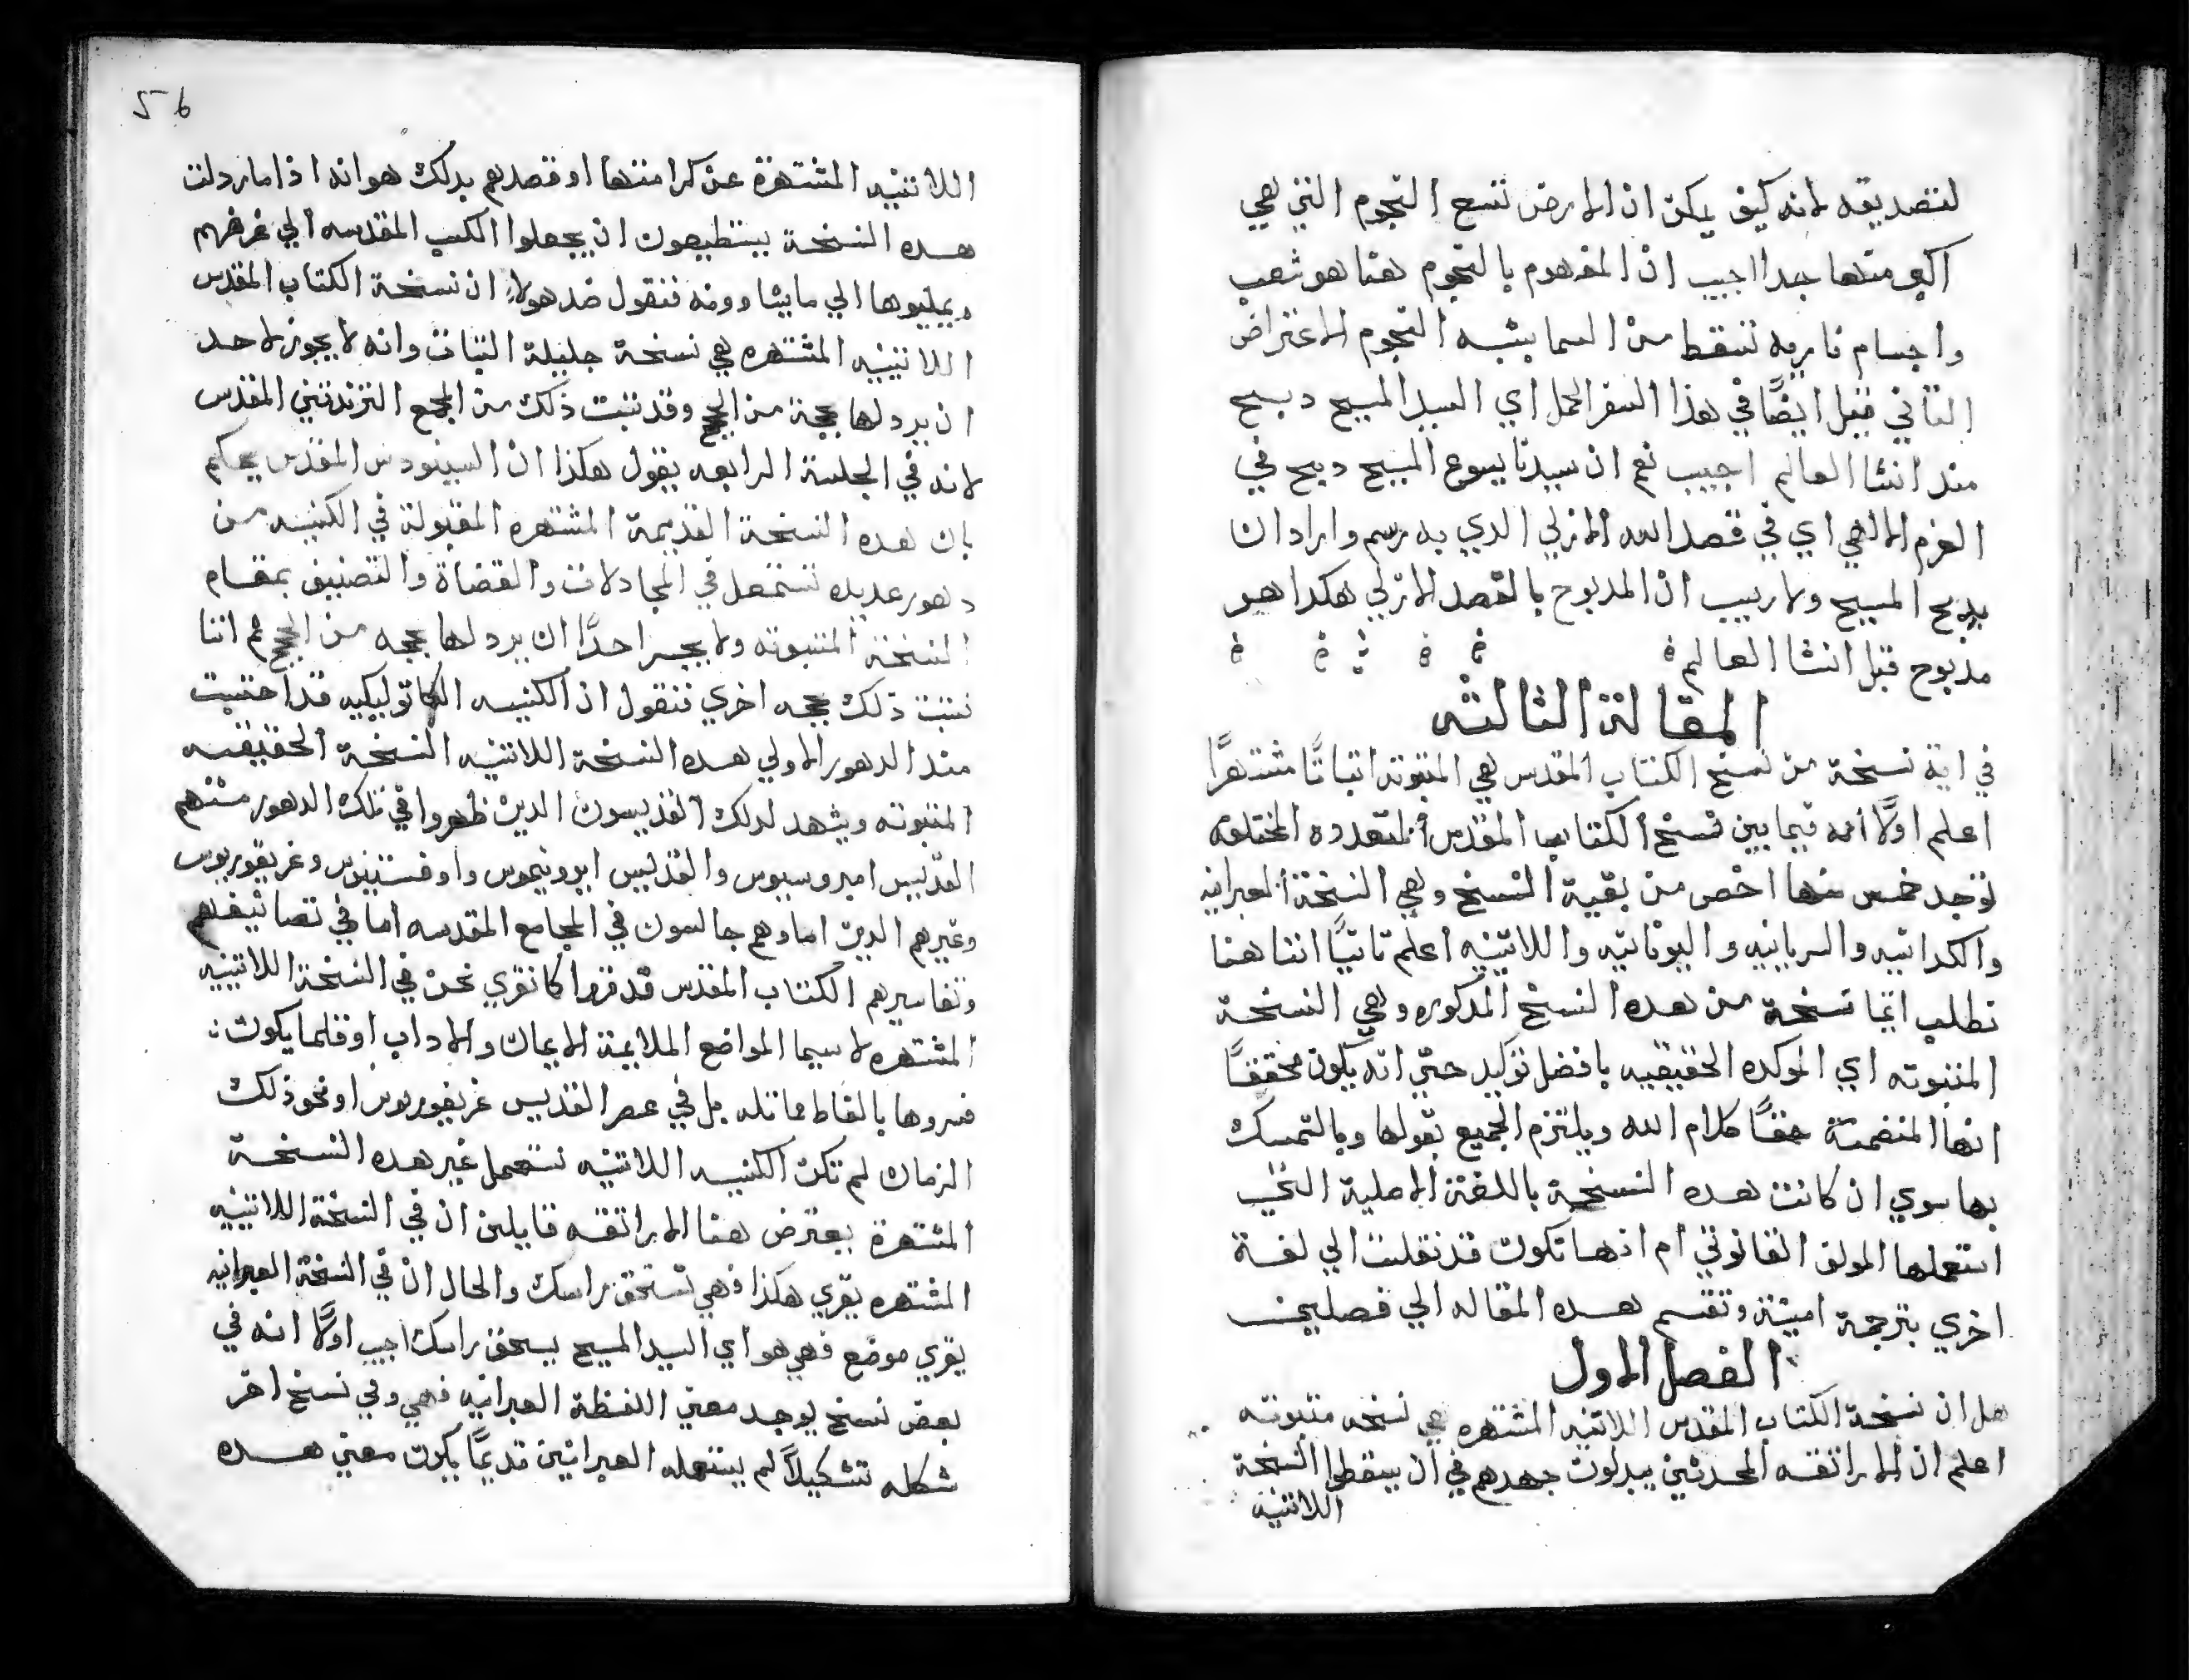 لتصديقه لانه كيف يمكن ان الارض تسع النجوم التي هي
اكبر منها جدا اجيب ان المفهوم بالنجوم هنا هو شهب
واجسام ناريه تسقط من السما يشبه النجوم الاعتراض
التاني قيل ايضًا في هذا السفر الحمل اي السيد المسيح دبيح
مند انشا العالم اجيب نعم ان سيدنا يسوع المسيح دبح في
العزم الالهي اي في قصد الله الازلي الدي به رسم واراد ان
يدبح المسيح ولا ريب ان المدبوح بالقصد الازلي هكدا هو
مذبوح قبل انشا العالم
المقالة الثالثه
في اية نسخة من نسخ الكتاب المقدس هي المتبوته اتباتًا مشتهرًا
اعلم اولًا انه فيما بين نسخ الكتاب المقدس المتعدده المختلفه
توجد خمس منها اخص من بقية النسخ وهي النسخة العبرانيه
والكدانيه والسريانيه واليونانيه واللاتينيه اعلم تانيًا اننا هنا
نطلب ايما نسخة من هده النسخ المدكوره وهي النسخة
المتبوته اي الموكده الحقيقيه بافضل توكيد حتي انه يكون محققًا
انها المتضمنة حقًا كلام الله ويلتزم الجميع بقولها وبالتمسك
بها سوي ان كانت هده النسخة باللغة الاصلية التي
استعملها المولف القانوني ام انها تكون قد نقلت الي لغة
اخري بترجمة امينة وتقسم هده المقاله الي فصليـن
الفصل الاول
هل ان نسخة الكتاب المقدس اللاتنيه المشتهره هي نسخه متبوته
اعلم ان الاراتقه المحدثين يبدلون جهدهم في ان يسقطوا النسخة
اللاتنيه
56
اللاتنيه المشتهرة عن كرامتها او قصدهم بدلك هو انه اذا ما ردلت
هده النسخة يستطيعون ان يجعلوا الكتب المقدسه الي غرضهم
ويميلوها الي ما يشاوونه فنقول ضد هولاء ان نسخة الكتاب المقدس
اللاتينيه المشتهره هي نسخة جليلة التبات وانه لا يجوز لاحد
ان يردلها بحجة من الحجج وقد تبت ذلك من المجمع التريدنتيني المقدس
لانه في الجلسة الرابعه يقول هكذا ان السينودس المقدس يحكم
بان هده النسخة القديمة المشتهره المقبولة في الكنيسه من
دهور عديده تستعمل في المجادلات والقضاة والتصنيف بمقام
النسخة المتبوته ولا يجسر احدًا ان يردلها بحجه من الحجج ثم اننا
نتبت ذلك بحجه اخري فنقول ان الكنيسه الكاتوليكيه قد احتسبت
مند الدهور الاولي هده النسخة اللاتنيه النسخة الحقيقيه
المتبوته ويشهد لدلك القديسون الدين ظهروا في تلك الدهور منهم
القديس امبروسيوس والقديس ايرونيموس واوغستينوس وغريغوريوس
وغيرهم الدين اما وهم جالسون في المجامع المقدسه اما في تصانيفهم
وتفاسيرهم الكتاب المقدس قد قروا كما نقري نحن في النسخة اللاتينيه
المشتهره لا سيما المواضع الملايمة الايمان والاداب او قلما يكون
فسروها بالفاظ مماتله بل في عصر القديس غريغوريوس او نحو ذلك
الزمان لم تكن الكنيسه اللاتنيه تستعمل غير هده النسخة
المشتهرة يعترض هنا الاراتقه قايلين ان في النسخة اللاتينيه
المشتهره يقري هكذا فهي تستحق راسك والحال ان في النسخة العبرانيه
يقري موضع فهي هو اي السيد المسيح يسحق راسك اجيب اولًا انه في
بعض نسخ يوجد معني اللفظة العبرانيه فهي وفي نسخ اخر
شكله تشكيلًا لم يستعمله العبرانيين قديمًا يكون معني هده